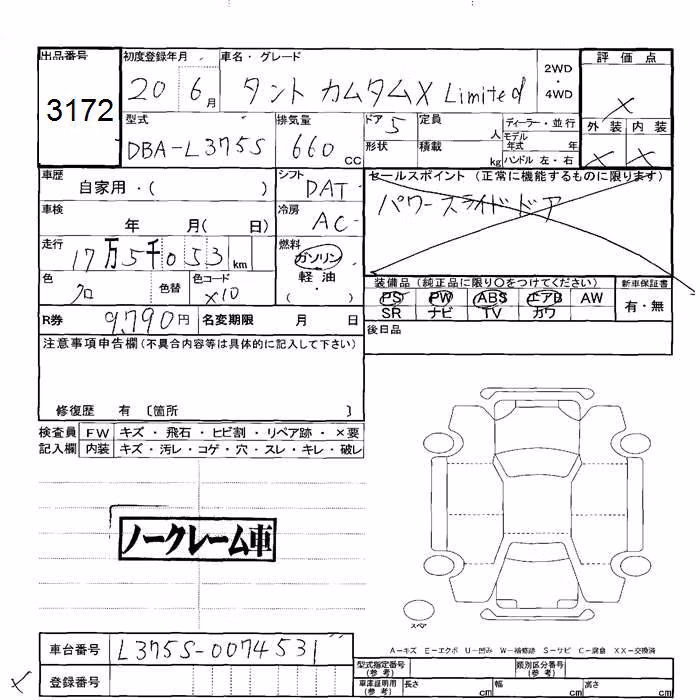 出品番号 初度登録年月 車名・グレード 2WD・4WD 評価点
3172 20 6月 タント カムタムX Limited X
外装 内装
X X
型式 排気量 ドア 5 定員 人 ディーラー・並行
DBA-L375S 660cc 形状 積載 kg モデル年式 年
ハンドル 左・右
車歴 自家用・( ) シフト DAT セールスポイント (正常に機能するものに限ります)
車検 年 月( 日) 冷房 AC パワースライドドア
走行 17万5千053km 燃料 ガソリン・軽油・( )
色 クロ 色替 色コード X10
装備品 (純正品に限り〇をつけてください) 新車保証書
PS PW ABS エアB AW 有・無
SR ナビ TV カワ
R券 9,790円 名変期限 月 日 後日品
注意事項申告欄(不具合内容等は具体的に記入して下さい)
修復歴 有 〔箇所 〕
検査員 FW キズ・飛石・ヒビ割・リペア跡・×要
記入欄 内装 キズ・汚レ・コゲ・穴・スレ・キレ・破レ
ノークレーム車
スペア
A-キズ E-エクボ U-凹み W-補修跡 S-サビ C-腐食 XX-交換済
車台番号 L375S-0074531
型式指定番号(参考) 類別区分番号(参考)
X 登録番号
車庫証明用(参考) 長さ cm 幅 cm 高さ cm